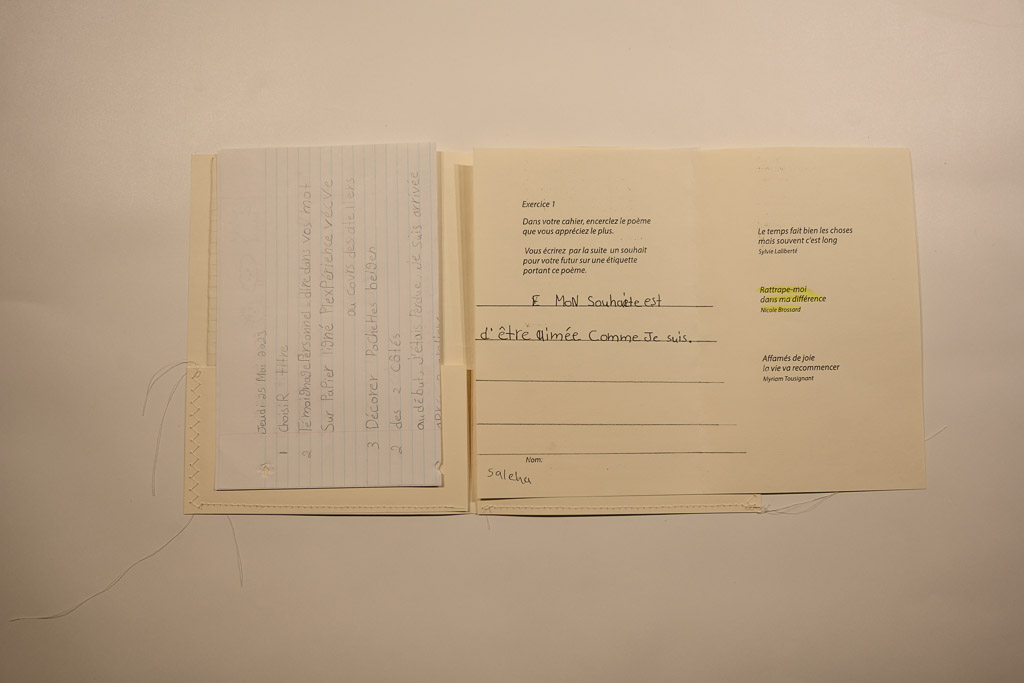 Jeudi 25 Mai 2023
1 choisiR titre
2 Témoignage Personnel. dire dans vos mot
Sur Papier ligné l'exPérience vécue
au cours des ateliers
3 Décorer Pochettes beigen
2 des 2 côtés
au début, J'étais Perdue. Je suis arrivée
Exercice 1
Dans votre cahier, encerclez le poème
que vous appréciez le plus.
Vous écrirez par la suite un souhait
pour votre futur sur une étiquette
portant ce poème.
E MoN Souhaite est
d'être aimée Comme Je suis.
Nom:
saleha
Le temps fait bien les choses
mais souvent c'est long
Sylvie Laliberté
Rattrape-moi
dans ma différence
Nicole Brossard
Affamés de joie
la vie va recommencer
Myriam Tousignant